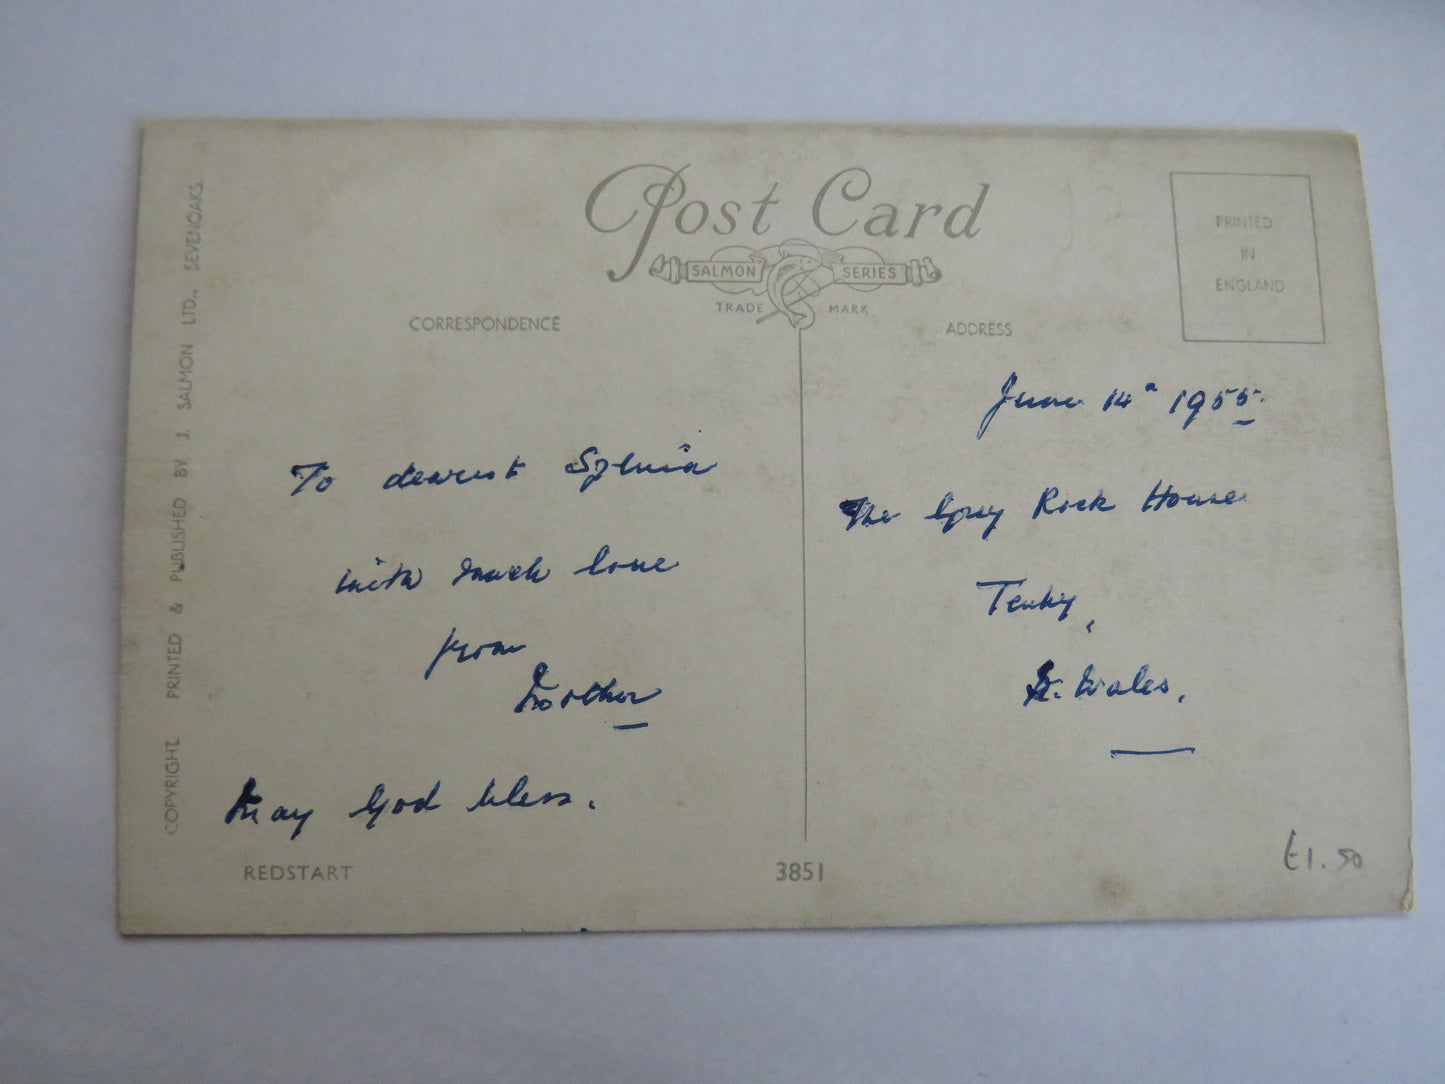 Post Card
SALMON SERIES
TRADE MARK
CORRESPONDENCE
ADDRESS
PRINTED
IN
ENGLAND
To dearest Sylvia
with much love
from
Mother
May God bless.
June 14" 1955.
The Grey Rock House
Tenby,
S. Wales.
COPYRIGHT PRINTED & PUBLISHED BY J. SALMON LTD., SEVENOAKS.
REDSTART
3851
£1.50